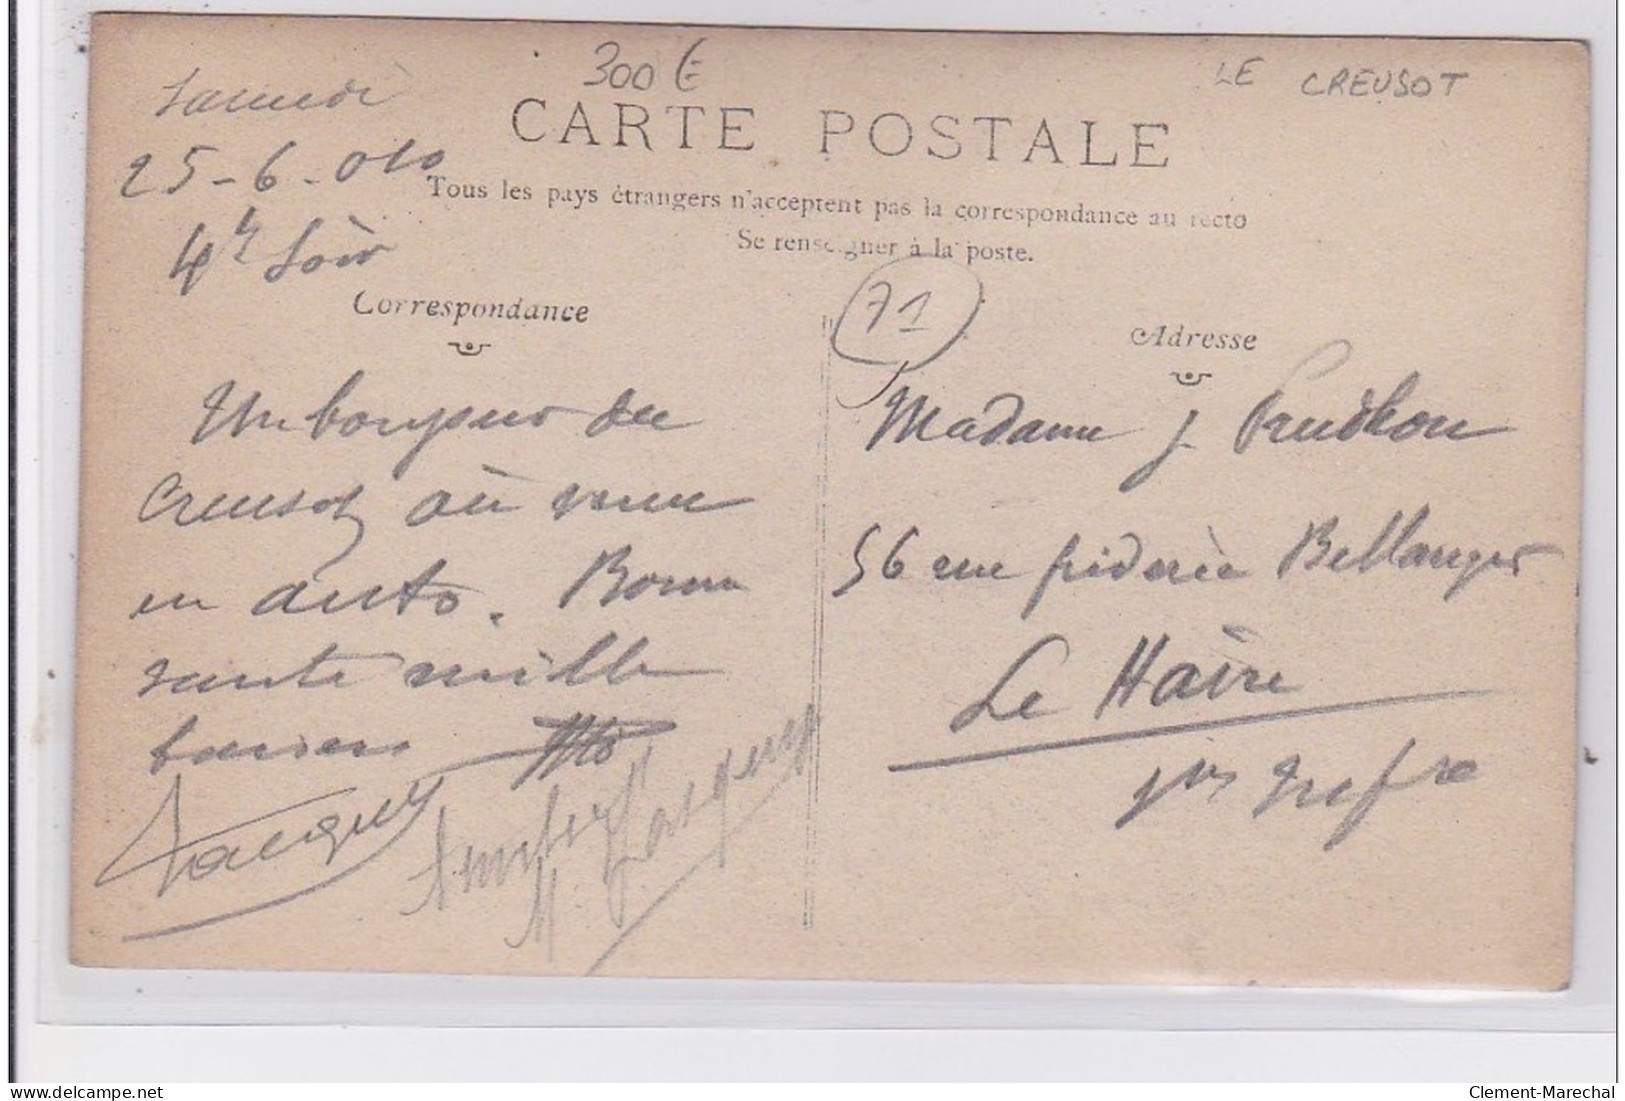 300 €
LE CREUSOT
Samedi
25-6-010
4h Soir
CARTE POSTALE
Tous les pays étrangers n'acceptent pas la correspondance au recto
Se renseigner à la poste.
Correspondance
Un bonjour du
Creusot où venu
en auto. Bonne
santé mille
baisers
Jacques
71
Adresse
Madame J Prudhon
56 rue fréderic Bellanger
Le Hâvre
Sre Infre
delcampe.net
Clement-Marechal